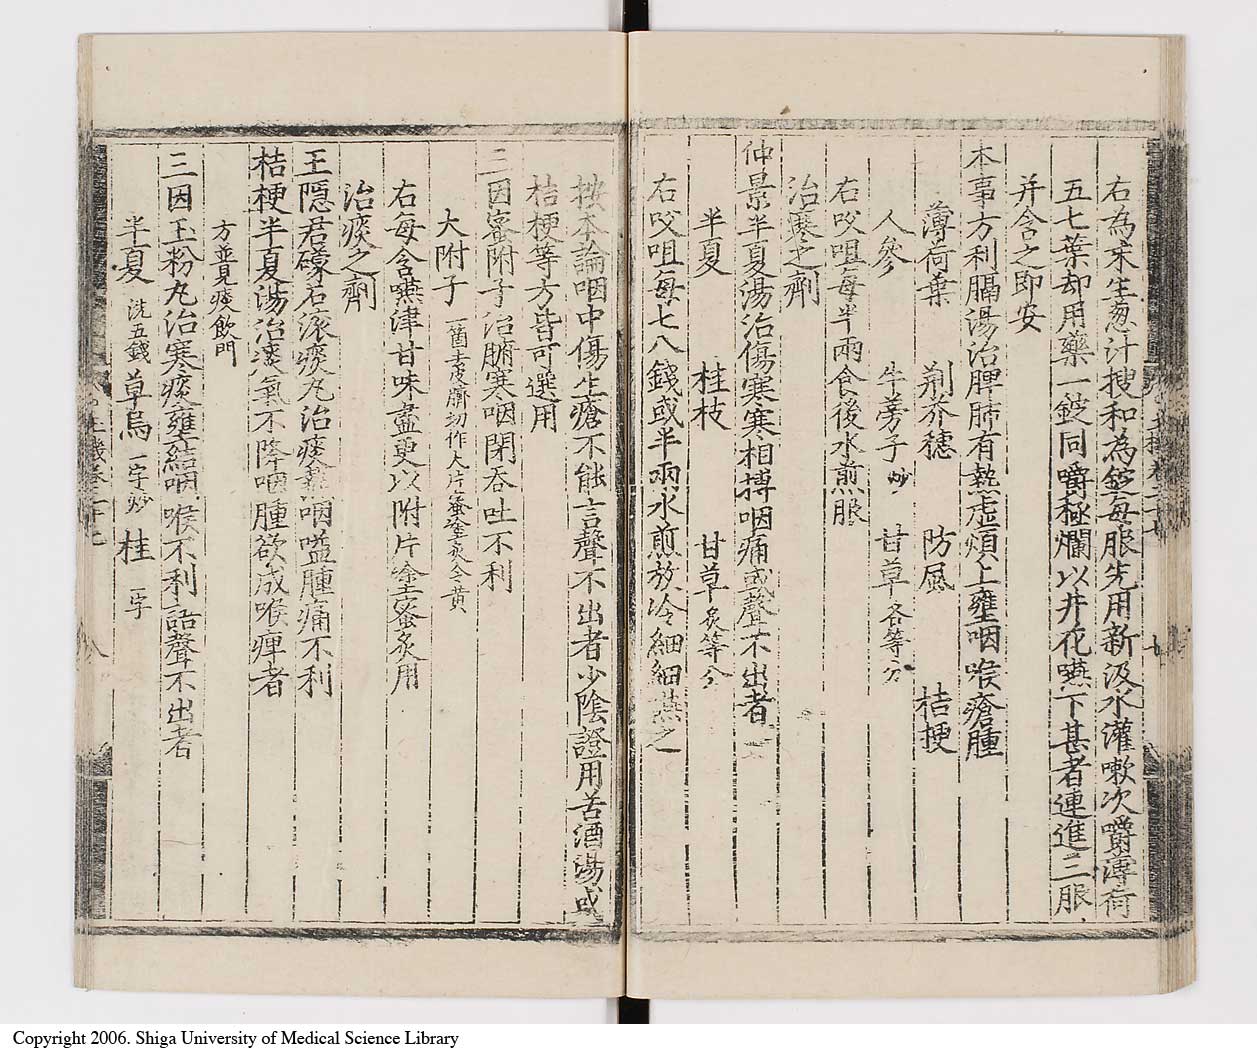 右為末生葱汁搜和為錠每服先用新汲水灌嗽次嚼薄荷
五七葉却用藥一錠同嚼極爛以井花嚥下甚者連進三服
并含之即安
本事方利膈湯治脾肺有熱虛煩上壅咽喉瘡腫
薄荷葉 荊芥穗 防風 桔梗
人參 牛蒡子炒 甘草各等分
右㕮咀每半兩食後水煎服
治寒之劑
仲景半夏湯治傷寒寒相搏咽痛或聲不出者
半夏 桂枝 甘草炙等分
右㕮咀每七八錢或半兩水煎放冷細細嚥之
按本論咽中傷生瘡不能言聲不出者少陰證用苦酒湯或
桔梗等方皆可選用
三因蜜附子治腑寒咽閉吞吐不利
大附子一箇去皮臍切作大片蜜塗炙令黃
右每含嚥津甘味盡更以附片塗蜜炙用
治痰之劑
王隱君礞石滚痰丸治痰熱咽嗌腫痛不利
桔梗半夏湯治痰氣不降咽腫欲成喉痺者
方並見痰飲門
三因玉粉丸治寒痰壅結咽喉不利語聲不出者
半夏洗五錢 草烏一字炒 桂一字
Copyright 2006. Shiga University of Medical Science Library